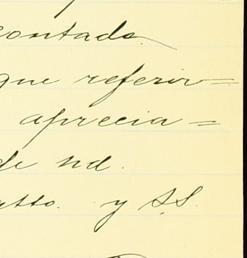 contado
que referir-
aprecia=
de nd.
atto. y S.S.